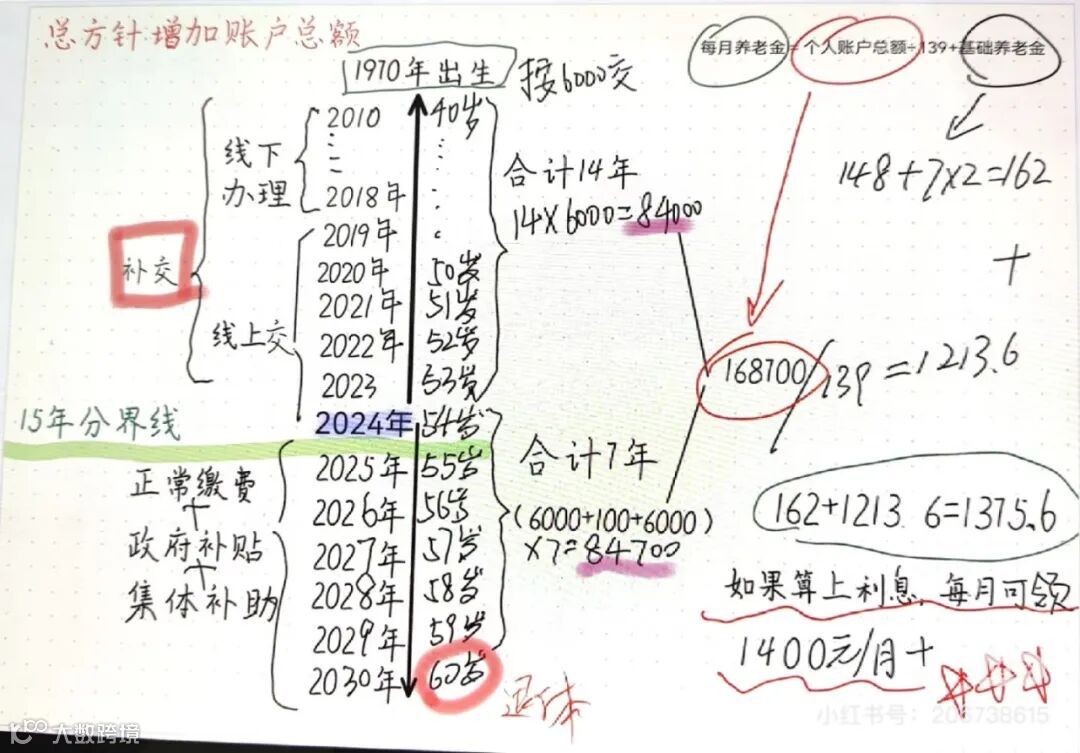 总方针:增加账户总额
每月养老金=个人账户总额÷139+基础养老金
1970年出生
按6000交
补交
线下
办理
线上交
2010 40岁
2018年
2019年
2020年 50岁
2021年 51岁
2022年 52岁
2023 53岁
合计14年
14×6000=84000
148+7×2=162
+
168700/139=1213.6
15年分界线
2024年 54岁
正常缴费
+
政府补贴
+
集体补助
2025年 55岁
2026年 56岁
2027年 57岁
2028年 58岁
2029年 59岁
2030年 60岁
退休
合计7年
(6000+100+6000)
×7=84700
162+1213.6=1375.6
如果算上利息,每月可领
1400元/月+
小红书号:206738615
大数跨境